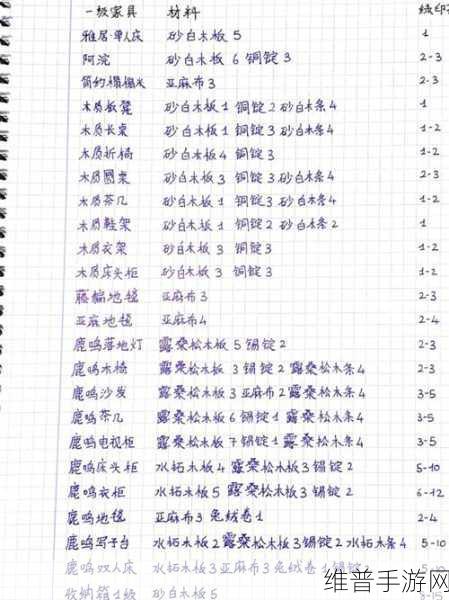 一极家具 材料 续印
雅居·单人床 砂白木板 5 1
阿浣 砂白木板 6 铜锭 3 2-3
简约榻榻米 亚麻布 3 2-3
木质板凳 砂白木板 1 铜锭 2 砂白木条 4 1
木质长桌 砂白木板 1 铜锭 3 砂白木条 4 1-2
木质折椅 砂白木板 4 铜锭 3 1-2
木质圆桌 砂白木板 3 铜锭 3 砂白木条 4 2-3
木质茶几 砂白木板 1 铜锭 3 砂白木条 4 1-2
木质鞋架 砂白木板 1 铜锭 2 砂白木条 2 1
木质衣架 砂白木板 3 铜锭 3 1-2
木质床头柜 砂白木板 3 铜锭 3 1-2
藤编地毯 亚麻布 3 2-3
亚麻地毯 亚麻布 4 2-4
鹿鸣落地灯 露桑松木板 5 锡锭 2 2-3
鹿鸣木椅 露桑松木板 3 锡锭 2 露桑松木条 4 2-3
鹿鸣沙发 露桑松木板 3 亚麻布 2 露桑松木条 4 3-5
鹿鸣茶几 露桑松木板 6 锡锭 1 露桑松木条 4 3-5
鹿鸣电视柜 露桑松木板 7 锡锭 1 露桑松木条 4 3-5
鹿鸣床头柜 水拓木板 4 露桑松木板 3 锡锭 2 5-10
鹿鸣衣柜 水拓木板 5 露桑松木板 3 锡锭 2 6-12
鹿鸣地毯 亚麻布 3 兔绒卷 1 2-4
鹿鸣写字台 水拓木板 2 露桑松木板 3 锡锭 2 水拓木条 4 5-10
鹿鸣双人床 水拓木板 3 亚麻布 3 兔绒卷 1 锡锭 2 5-10
收纳箱1级 砂白木板 5 8-15
维普手游网